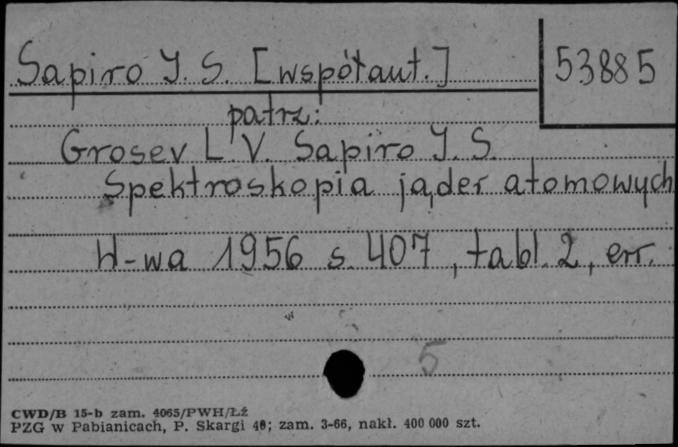 Sapiro J. S. [współaut.]
53885
patrz:
Grosev L. V. Sapiro J. S.
Spektroskopia jąder atomowych
W-wa 1956 s. 407, tabl. 2, err.
5
CWD/B 15-b zam. 4065/PWH/Łż
PZG w Pabianicach, P. Skargi 40; zam. 3-66, nakł. 400 000 szt.